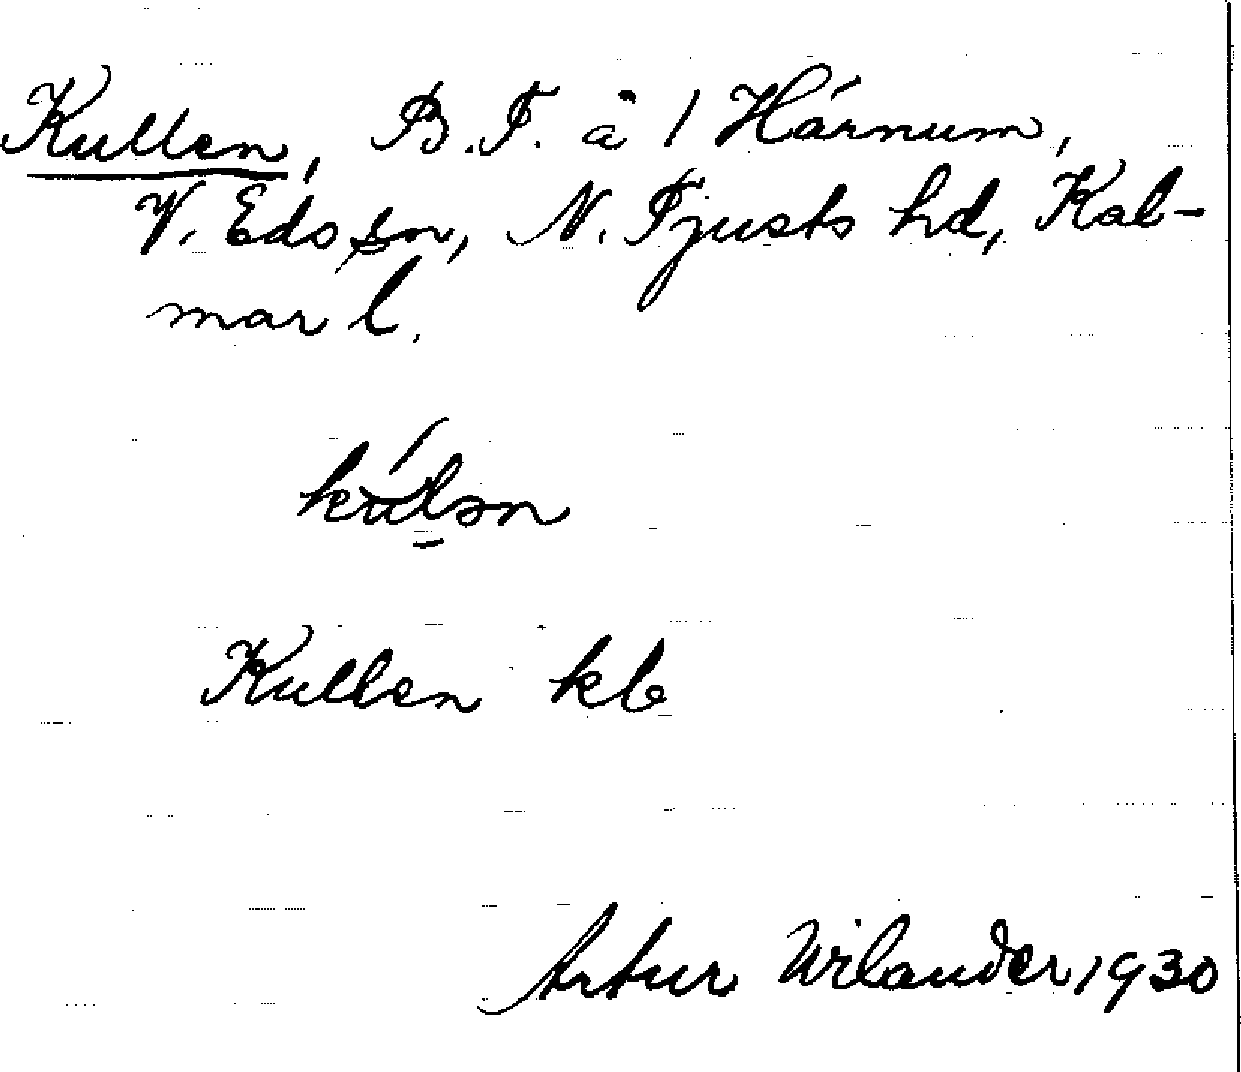 Kullen, B.T. å 1 Hárnum,
V. Eds sn, N. Tjusts hd, Kal-
mar l.
kúlən
Kullen kb
Artur Wilander 1930